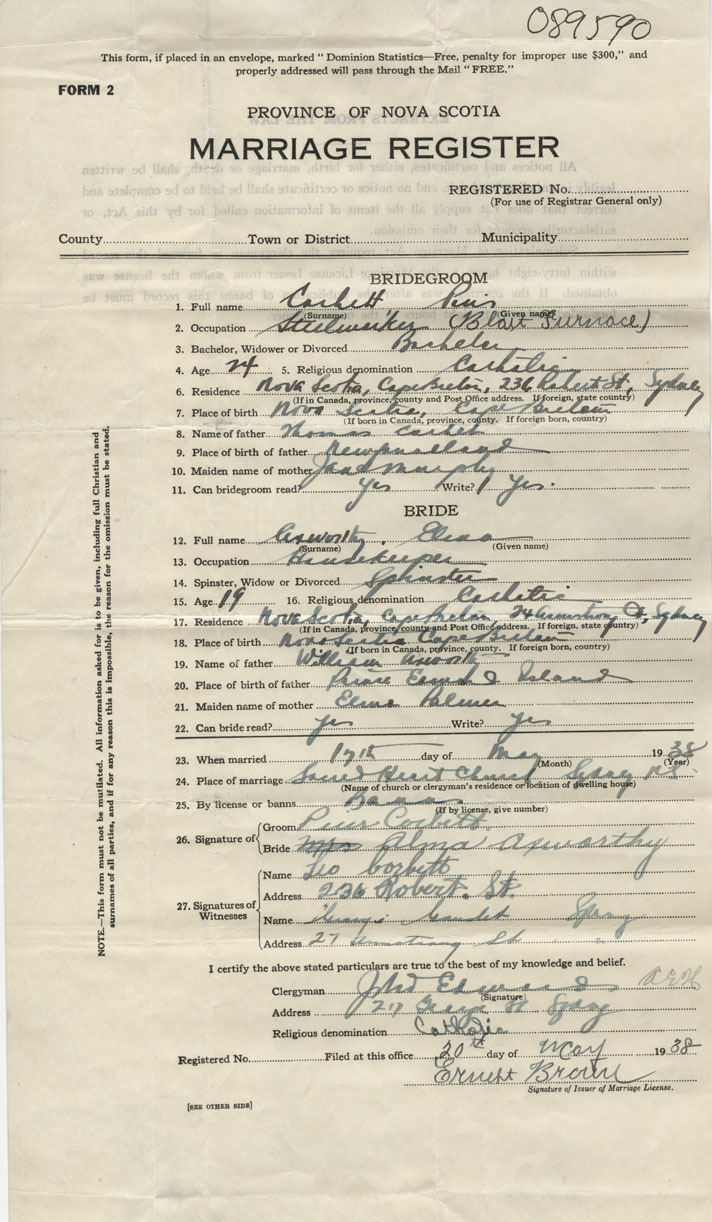 089590
This form, if placed in an envelope, marked “Dominion Statistics—Free, penalty for improper use $300,” and
properly addressed will pass through the Mail “FREE.”
FORM 2
PROVINCE OF NOVA SCOTIA
MARRIAGE REGISTER
REGISTERED No.
(For use of Registrar General only)
County Town or District Municipality
BRIDEGROOM
1. Full name Corbett, Pius
(Surname) (Given name)
2. Occupation Steelworker (Blast Furnace)
3. Bachelor, Widower or Divorced Bachelor
4. Age 24 5. Religious denomination Catholic
6. Residence Nova Scotia, Cape Breton, 236 Robert St, Sydney
(If in Canada, province, county and Post Office address. If foreign, state country)
7. Place of birth Nova Scotia, Cape Breton
(If born in Canada, province, county. If foreign born, country)
8. Name of father Thomas Corbett
9. Place of birth of father Newfoundland
10. Maiden name of mother Murphy
11. Can bridegroom read? Yes Write? Yes.
BRIDE
12. Full name Axworthy,
(Surname) (Given name)
13. Occupation Housekeeper
14. Spinster, Widow or Divorced Spinster
15. Age 19 16. Religious denomination Catholic
17. Residence Nova Scotia, Cape Breton Armstrong Ct, Sydney
(If in Canada, province, county and Post Office address. If foreign, state country)
18. Place of birth Nova Scotia Cape Breton
(If born in Canada, province, county. If foreign born, country)
19. Name of father William Axworthy
20. Place of birth of father Prince Edward Island
21. Maiden name of mother Palmer
22. Can bride read? yes Write? yes
23. When married 17th day of May 1938
(Month) (Year)
24. Place of marriage Sacred Heart Church Sydney NS
(Name of church or clergyman's residence or location of dwelling house)
25. By license or banns Banns
(If by license, give number)
26. Signature of
Groom Pius Corbett
Bride Mrs Alma Axworthy
27. Signatures of Witnesses
Name Leo Corbett
Address 236 Robert. St.
Name Sydney
Address 27 Armstrong St " "
I certify the above stated particulars are true to the best of my knowledge and belief.
Clergyman
(Signature)
Address George St Sydney
Religious denomination Catholic
Registered No. Filed at this office 20th day of May 1938
Ernest Brown
Signature of Issuer of Marriage License.
[SEE OTHER SIDE]
NOTE.—This form must not be mutilated. All information asked for is to be given, including full Christian and
surnames of all parties, and if for any reason this is impossible, the reason for the omission must be stated.